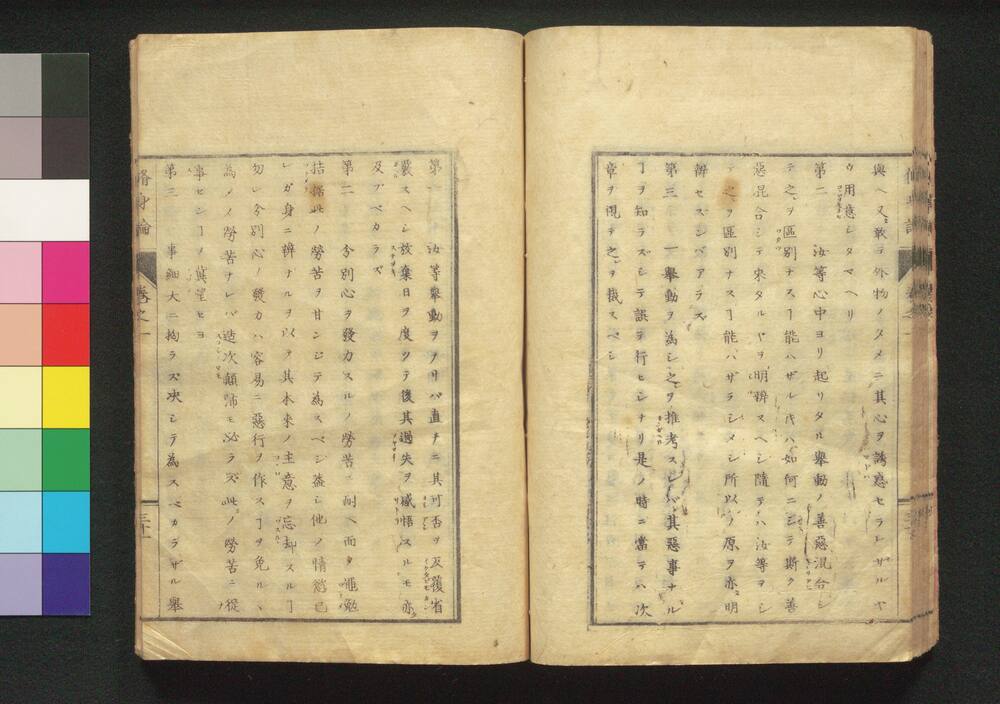 與ヘ又敢テ外物ノタメニ其心ヲ誘惑セラレザルヤ
ウ用意シタマヘリ
第二 汝等心中ヨリ起リタル舉動ノ善惡混合シ
テ之ヲ區別ナスヿ能ハザル代ハ如何ニシテ斯ク善
惡混合シテ來タルヤヲ明辨スヘシ隨テハ汝等ヲシ
テ之ヲ區別ナスヿ能ハザラシメシ所以ノ原ヲ亦明
辨セスンバアラズ
第三 一舉動ヲ為シ之ヲ推考スレバ其惡事ナル
ヿヲ知ラズシテ誤テ行ヒシナリ是ノ時ニ當テハ次
章ヲ閲テ之ヲ裁スベシ
第一 汝等舉動ヲナサバ直チニ其可否ヲ反覆省
察スヘシ放棄日ヲ度ツテ後其過失ヲ感悟スルモ亦
及ブベカラズ
第二 分別心ヲ發力スルノ勞苦ニ耐ヘ而タ黽勉
拮据此ノ勞苦ヲ甘ンジテ為スベシ蓋シ他ノ情慾已
レガ身ニ辨ナルヲ以テ其本来ノ主意ヲ忘却スルヿ
勿レ分別心ノ發力ハ容易ニ惡行ヲ作スヿヲ免ルヽ
為メノ勞苦ナレバ造次顛沛モ必ラズ此ノ勞苦ニ從
事センヿヲ冀望セヨ
第三 事細大ニ拘ラズ决シテ為スベカラザル舉
脩身論 卷之一 三十一